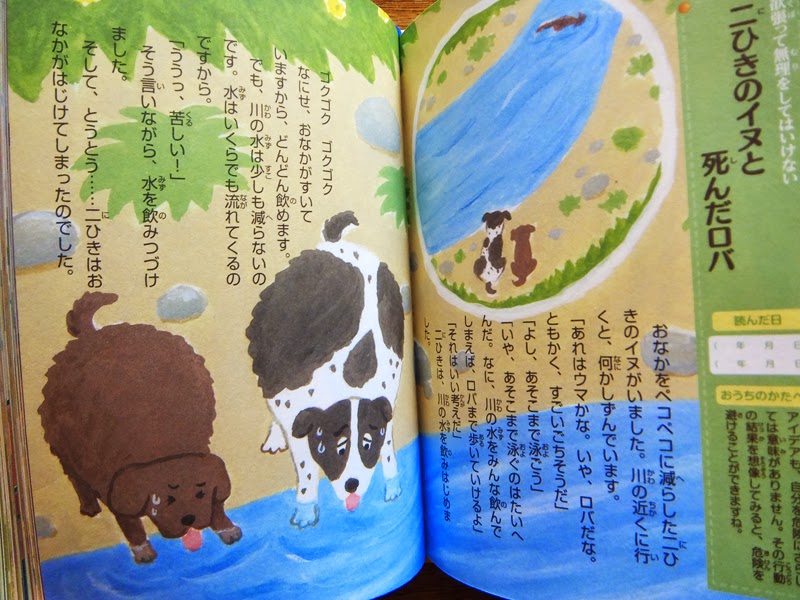 欲張って無理をしてはいけない
二ひきのイヌと
死んだロバ
読んだ日
( 年 月 日
( 年 月 日
おうちのかたへ
アイデアも、自分を危険にさら
ては意味がありません。その行動
の結果を想像してみると、危険を
避けることができますね。
おなかをペコペコに減らした二ひ
きのイヌがいました。川の近くに行
くと、何かしずんでいます。
「あれはウマかな。いや、ロバだな。
ともかく、すごいごちそうだ」
「よし、あそこまで泳ごう」
「いや、あそこまで泳ぐのはたいへ
んだ。なに、川の水をみんな飲んで
しまえば、ロバまで歩いていけるよ」
「それはいい考えだ」
二ひきは、川の水を飲みはじめま
した。
ゴクゴク ゴクゴク
なにせ、おなかがすいて
いますから、どんどん飲めます。
でも、川の水は少しも減らないの
です。水はいくらでも流れてくるの
ですから。
「ううっ、苦しい!」
そう言いながら、水を飲みつづけ
ました。
そして、とうとう……二ひきはお
なかがはじけてしまったのでした。